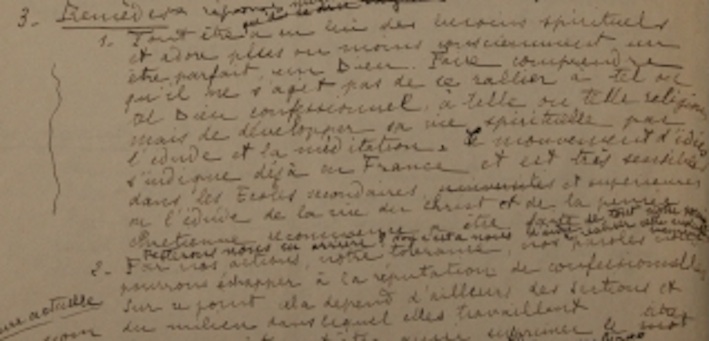 3. Remèdes
1. Tout être a en lui des besoins spirituels
et adore plus ou moins consciemment un
être parfait, un Dieu. Faire comprendre
qu'il ne s'agit pas de se rallier à tel ou
tel Dieu confessionnel, à telle ou telle religion
mais de développer sa vie spirituelle par
l'étude et la méditation. Ce mouvement d'idées
s'indique déjà en France et est très sensible
dans les Ecoles secondaires, et supérieures
où l'étude de la vie du Christ et de la pensée
chrétienne recommence à être
Resterons nous en arrière?
2. Par nos actions, notre tolérance, nos paroles nous
pourrons échapper à la réputation de confessionnelles
Sur ce point cela dépend d'ailleurs des sections et
actuelle
du milieu dans lequel elles travaillent
supprimer le mot